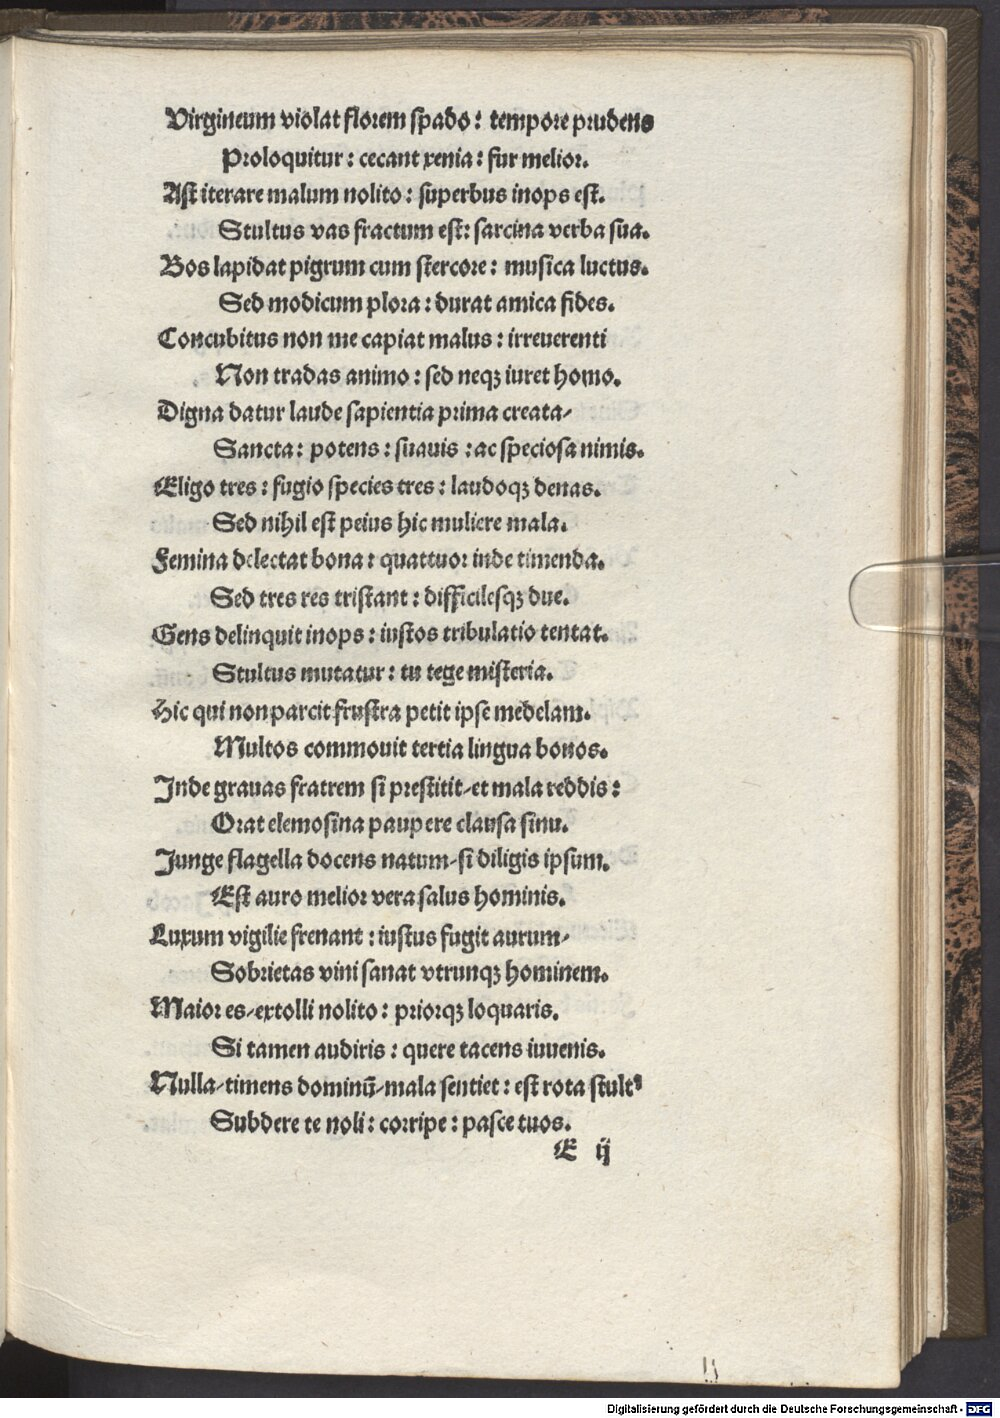 Virgineum violat florem spado: tempore prudens
Proloquitur: cecant xenia: fur melior.
Ast iterare malum nolito: superbus inops est.
Stultus vas fractum est: sarcina verba sua.
Bos lapidat pigrum cum stercore: musica luctus.
Sed modicum plora: durat amica fides.
Concubitus non me capiat malus: irreuerenti
Non tradas animo: sed neqꝫ iuret homo.
Digna datur laude sapientia prima creata/
Sancta: potens: suauis: ac speciosa nimis.
Eligo tres: fugio species tres: laudoqꝫ denas.
Sed nihil est peius hic muliere mala.
Femina delectat bona: quattuor inde timenda.
Sed tres res tristant: difficilesqꝫ due.
Gens delinquit inops: iustos tribulatio tentat.
Stultus mutatur: tu tege misteria.
Hic qui non parcit frustra petit ipse medelam.
Multos commouit tertia lingua bonos.
Inde grauas fratrem si prestitit/et mala reddis:
Orat elemosina paupere clausa sinu.
Junge flagella docens natum/si diligis ipsum.
Est auro melior vera salus hominis.
Luxum vigilie frenant: iustus fugit aurum/
Sobrietas vini sanat vtrunqꝫ hominem.
Maior es/extolli nolito: priorqꝫ loquaris.
Si tamen audiris: quere tacens iuuenis.
Nulla/timens dominū/mala sentiet: est rota stultꝰ
Subdere te noli: corripe: pasce tuos.
E ij
Digitalisierung gefördert durch die Deutsche Forschungsgemeinschaft - DFG